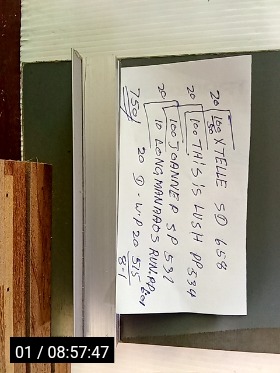 20 100 XTELLE SD 658
50
20 100 THIS IS LUSH PP 534
20 100 JOANNE P SP 531
10 LONG MAN
20 D W/P 20 515
8-1
750/
01 / 08:57:47